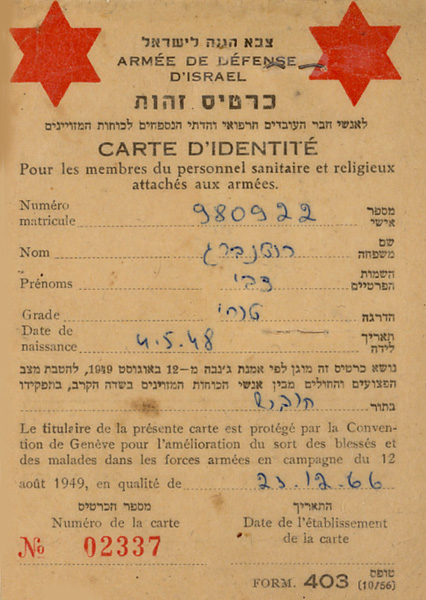 צבא הגנה לישראל
ARMÉE DE DÉFENSE
D'ISRAEL
כרטיס זהות
לאנשי חבר העובדים הרפואי והדתי הנספחים לכוחות המזויינים
CARTE D'IDENTITÉ
Pour les membres du personnel sanitaire et religieux
attachés aux armées.
Numéro matricule 980922 מספר אישי
Nom רוטנברג שם משפחה
Prénoms צבי השמות הפרטיים
Grade טוראי הדרגה
Date de naissance 4.5.48 תאריך לידה
נושא כרטיס זה מוגן לפי אמנת ג'נבה מ-12 באוגוסט 1949, להטבת מצב
הפצועים והחולים מבין אנשי הכוחות המזויינים בשדה הקרב, בתפקידו
בתור חובש
Le titulaire de la présente carte est protégé par la Conven-
tion de Genève pour l'amélioration du sort des blessés et
des malades dans les forces armées en campagne du 12
août 1949, en qualité de 25.12.66
מספר הכרטיס התאריך
Numéro de la carte Date de l'établissement
de la carte
No 02337
טופס
FORM. 403 (10/56)